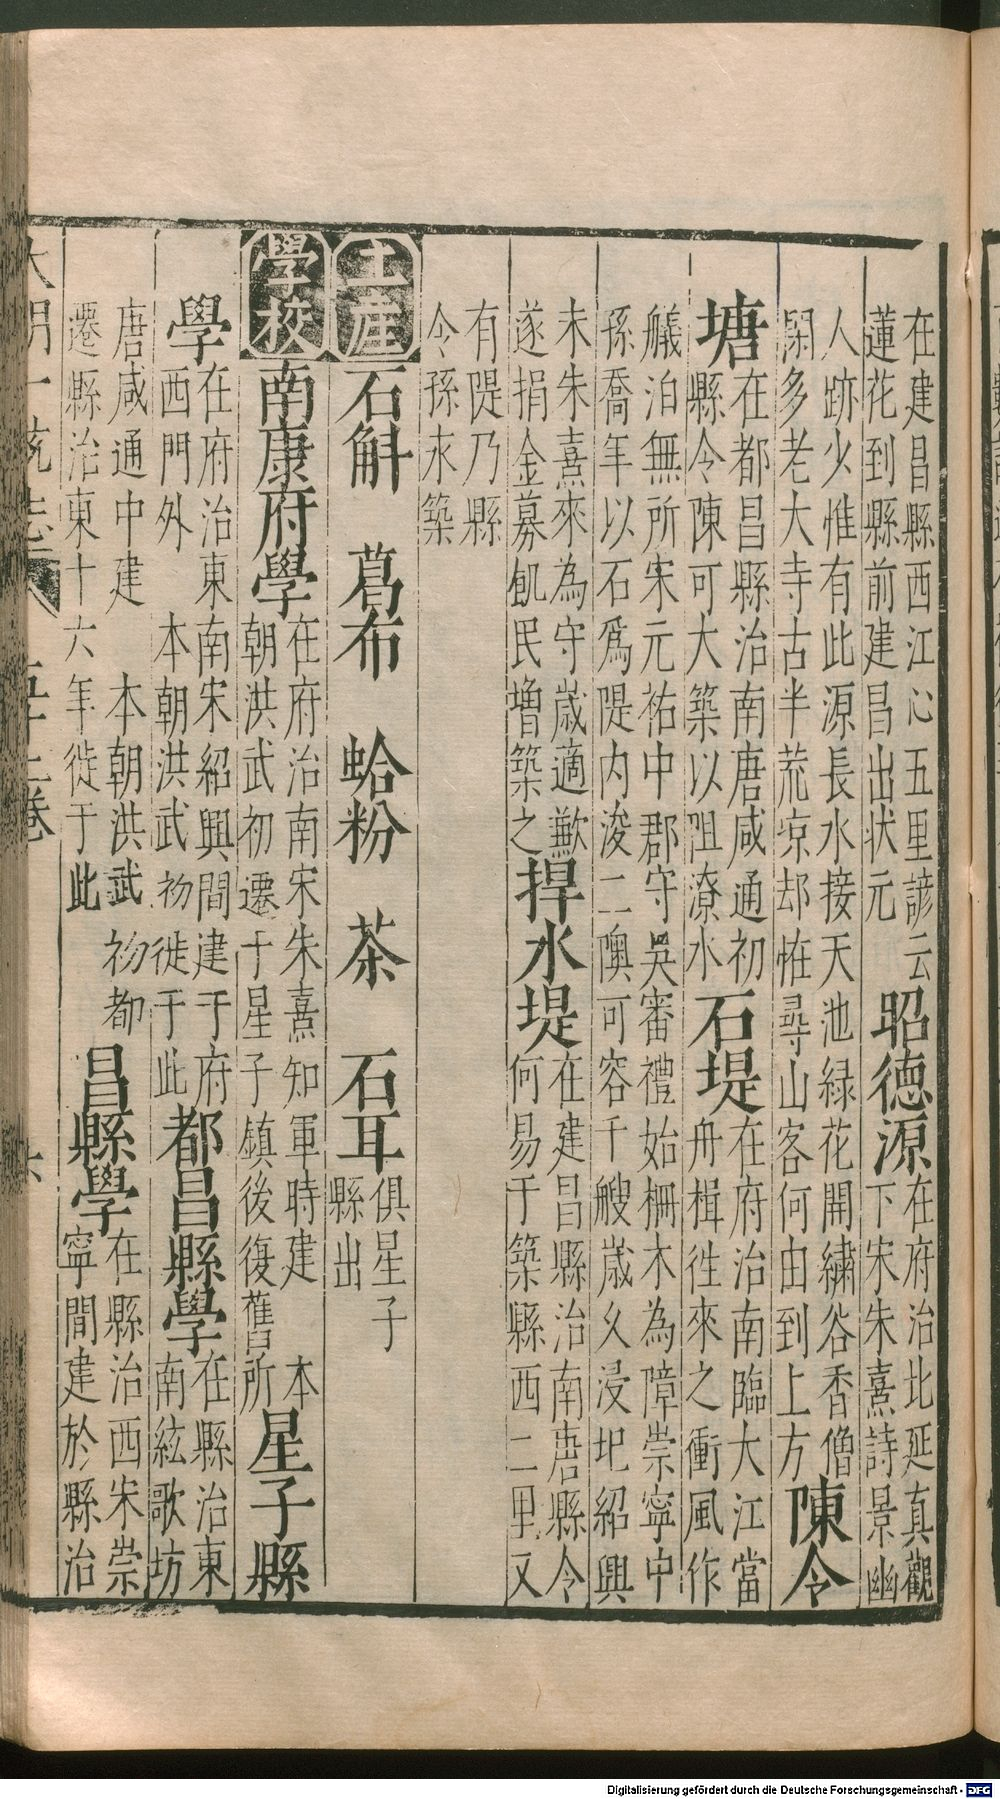 在建昌縣西江心五里諺云
蓮花到縣前建昌出状元
昭德源
在府治北延真觀
下宋朱熹詩景幽
人跡少惟有此源長水接天池緑花開繍谷香僧
閑多老大寺古半荒凉却恠尋山客何由到上方
陳令
塘
在都昌縣治南唐咸通初
縣令陳可大築以阻潦水
石堤
在府治南臨大江當
舟楫徃來之衝風作
艤泊無所宋元祐中郡守吳審禮始柵木為障崇寧中
孫喬年以石爲隄内浚二隩可容千艘歳乆浸圯紹興
未朱熹來為守歳適歉
遂捐金募飢民増築之
捍水堤
在建昌縣治南唐縣令
何易于築縣西二里又
有隄乃縣
令孫永築
土産
石斛 葛布 蛤粉 茶 石耳
俱星子
縣出
學校
南康府學
在府治南宋朱熹知軍時建 本
朝洪武初遷于星子鎮後復舊所
星子縣
學
在府治東南宋紹興間建于府
西門外 本朝洪武初徙于此
都昌縣學
在縣治東
南絃歌坊
唐咸通中建 本朝洪武初都
遷縣治東十六年徙于此
昌縣學
在縣治西宋崇
寧間建於縣治
Digitalisierung gefördert durch die Deutsche Forschungsgemeinschaft - DFG